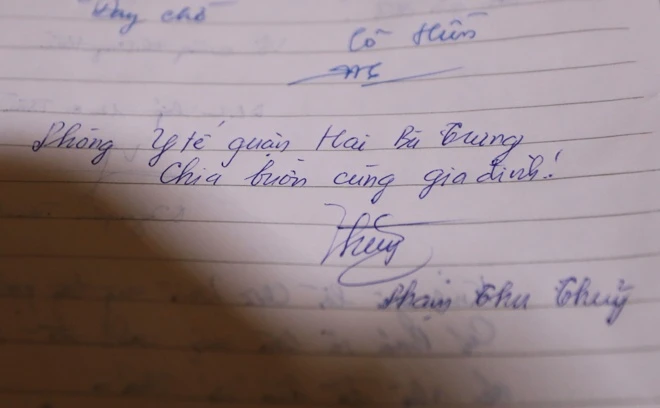 chỗ
Cô Hiền
Phòng Y tế quận Hai Bà Trưng
Chia buồn cùng gia đình!
Thuỷ
Phạm Thu Thuỷ